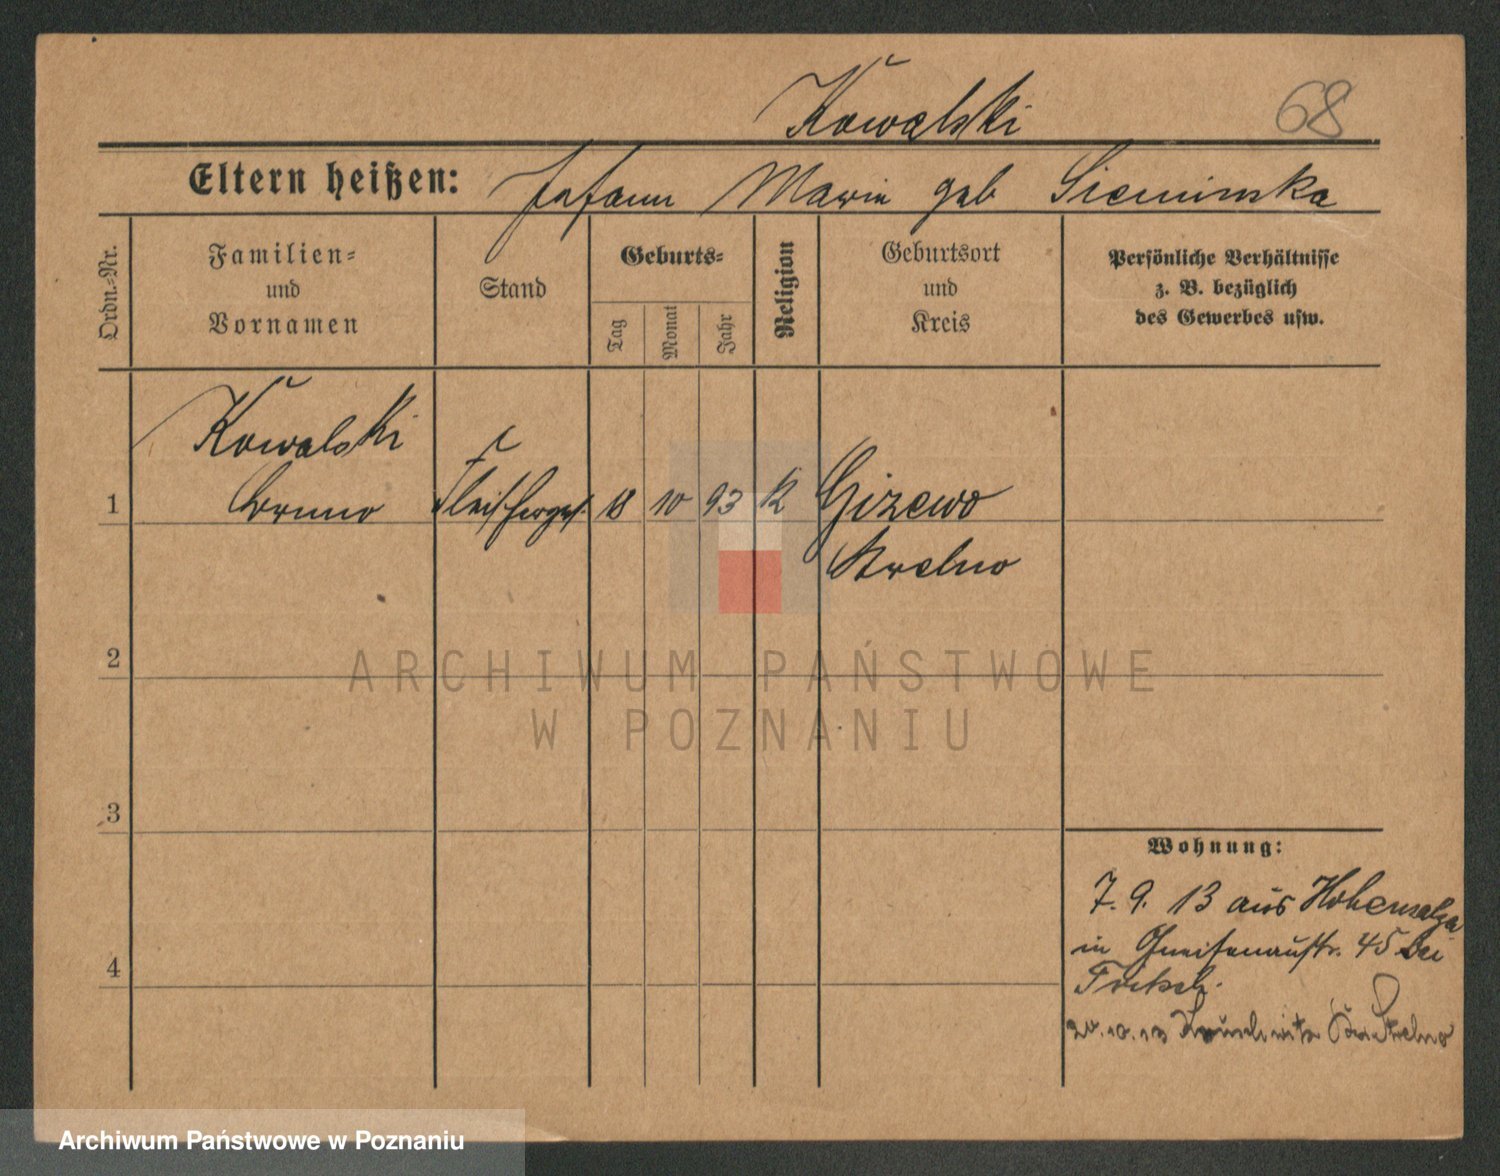 Kowalski 68
Eltern heißen: Johann Marie geb Sieminska
Ordn.-Nr.
Familien-
und
Vornamen
Stand
Geburts-
Tag
Monat
Jahr
Religion
Geburtsort
und
Kreis
Persönliche Verhältnisse
z. B. bezüglich
des Gewerbes usw.
Kowalski
1 Bruno Fleischerges. 18 10 93 K Gizewo
Strelno
2
ARCHIWUM PAŃSTWOWE
W POZNANIU
3
Wohnung:
7. 9. 13 aus Hohensalza
in Gneisenaustr. 45 bei
4
20.10.13 Kruschwitz Strelno
Archiwum Państwowe w Poznaniu